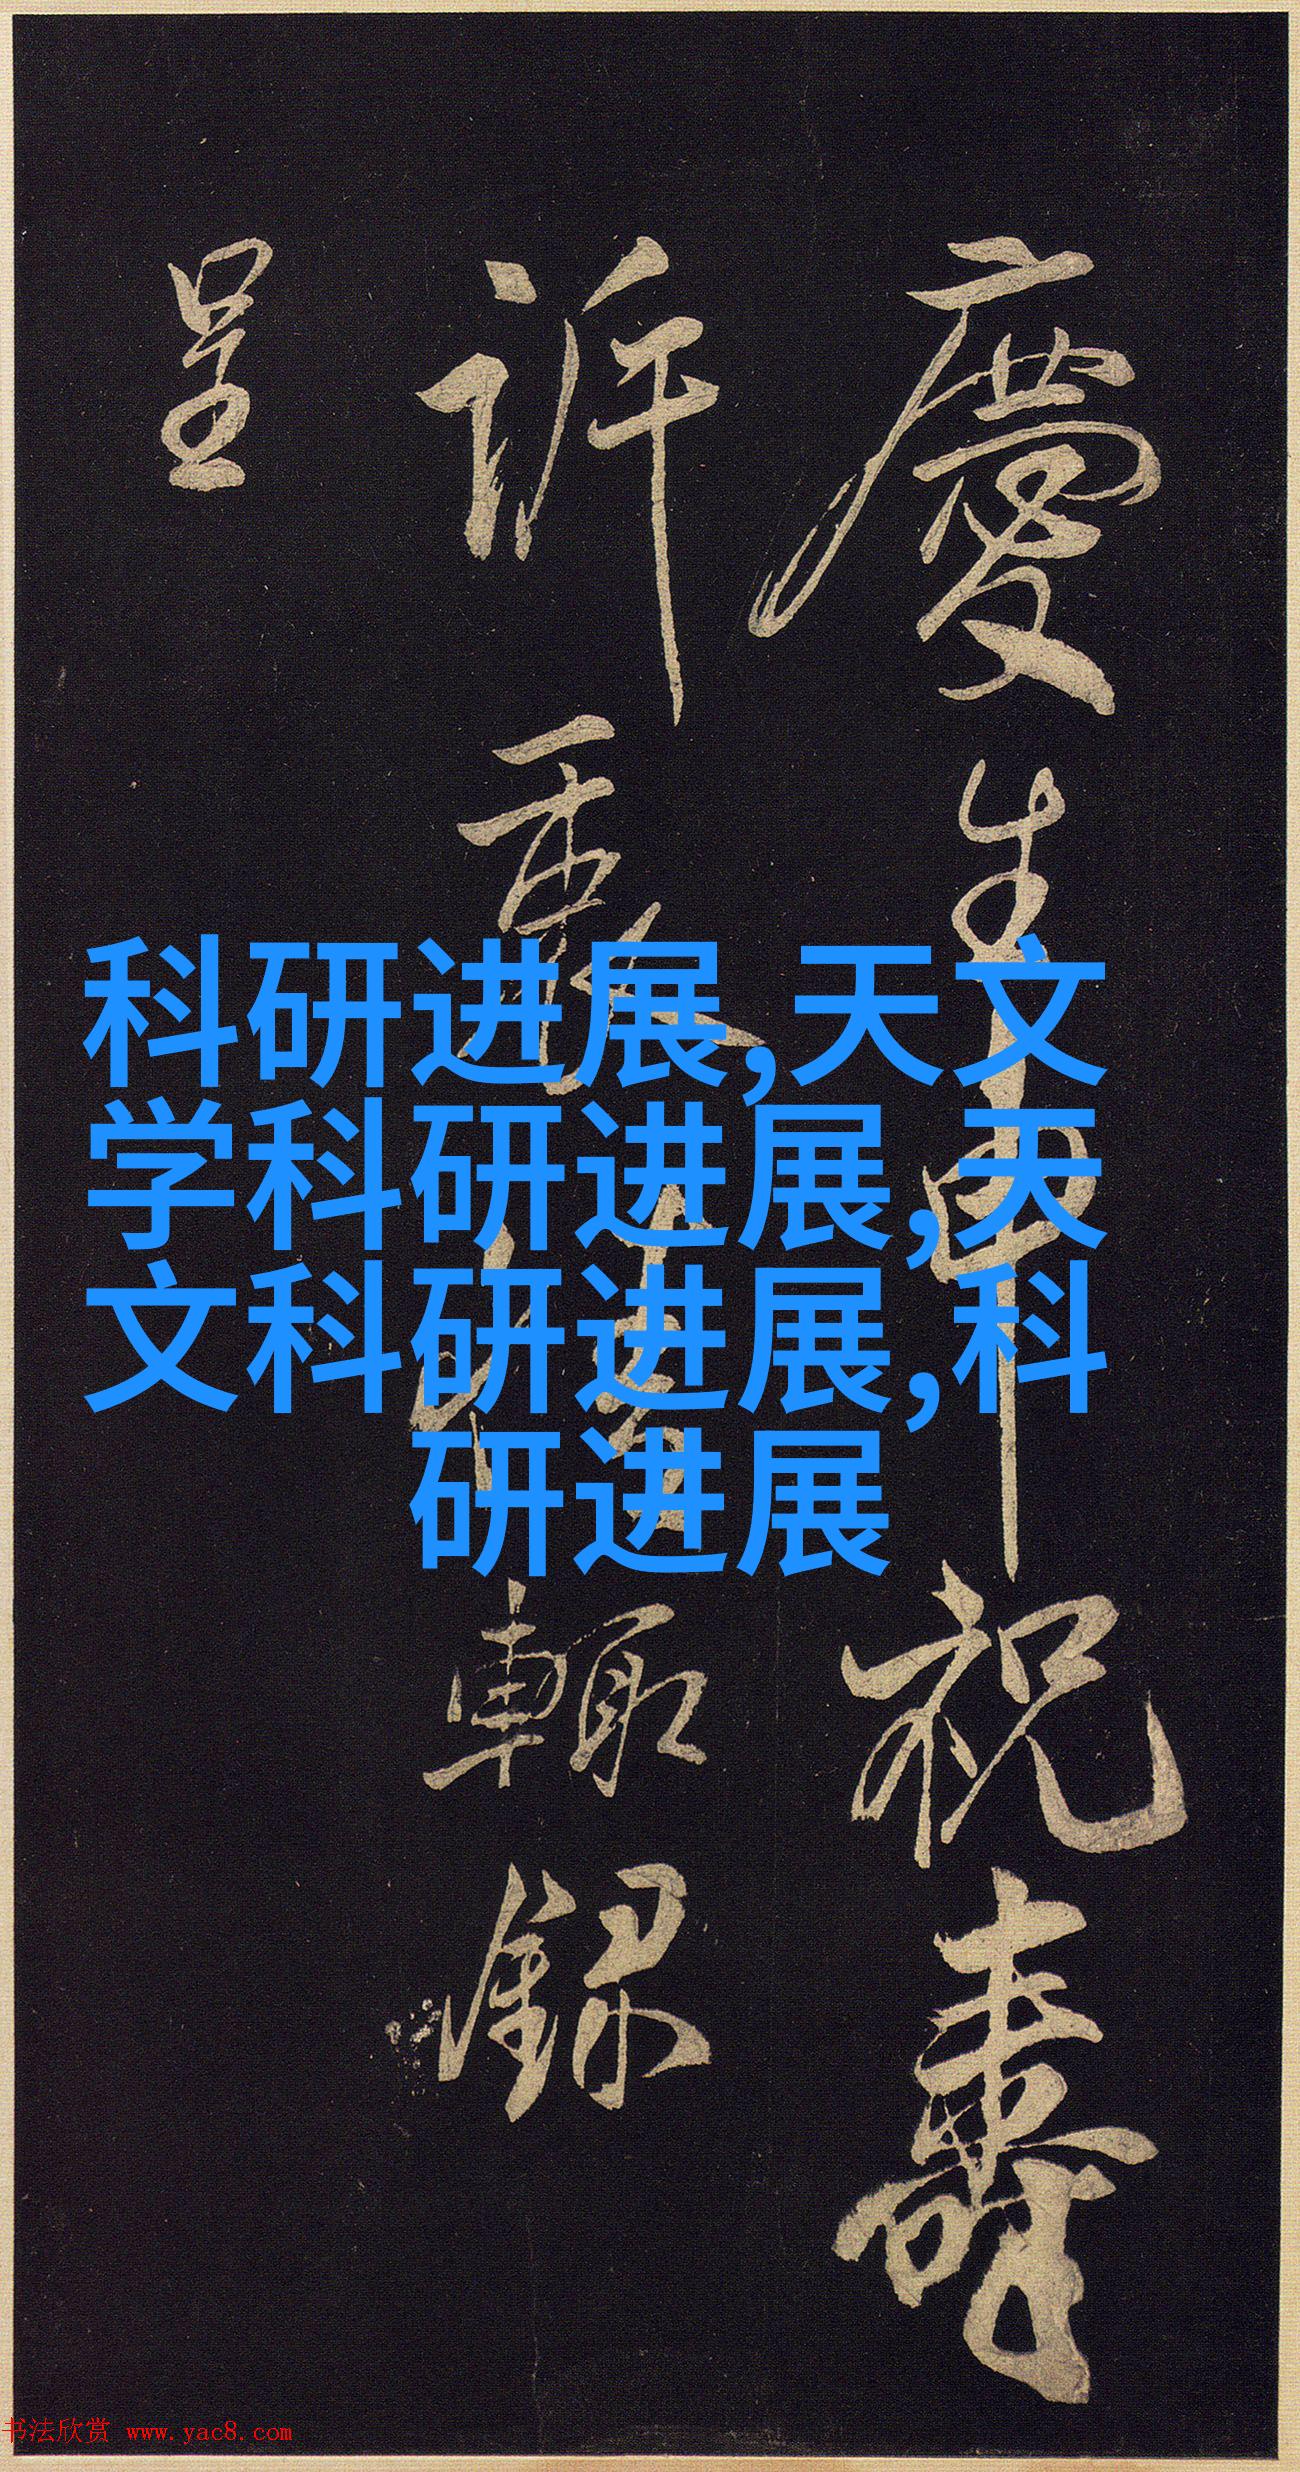 慶生申祝壽
訢 輙錄
呈
科研进展,天文
学科研进展,天
文科研进展,科
研进展
书法欣赏 www.yac8.com